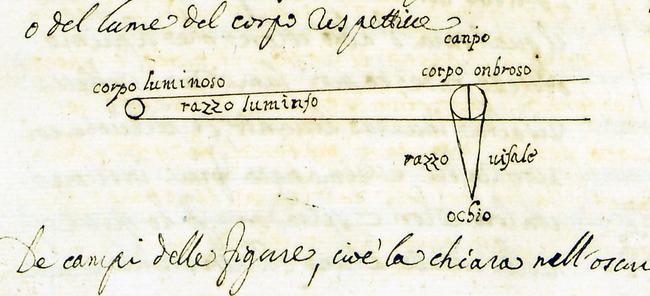 o del lume del corpo Respettiue
canpo
corpo luminoso
corpo onbroso
razzo luminso
razzo uisale
ochio
De campi delle figure, cioè la chiara nell'oscu